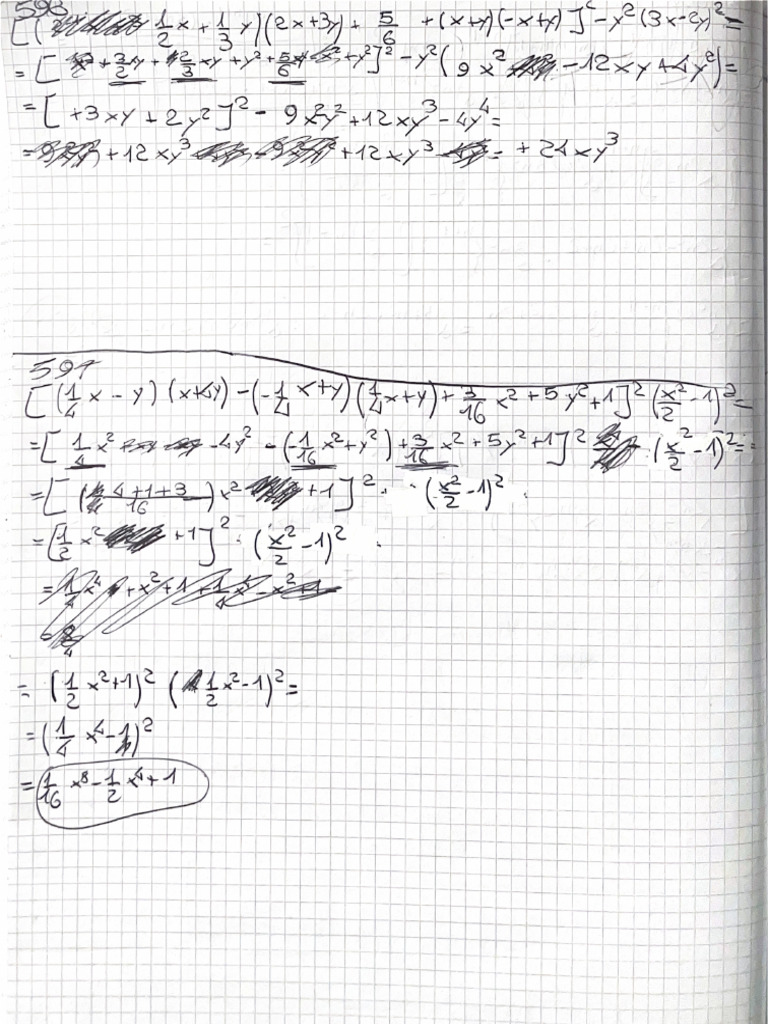 593
[( 1/2 x + 1/3 y)(2x+3y) + 5/6 + (x+y)(-x+y)]² - y²(3x-2y)² =
= [ x² + 3/2 xy + 2/3 xy + y² + 5/6 xy - x² + y²]² - y²( 9x² - 12xy + 4y²) =
= [ +3xy + 2y²]² - 9x²y² + 12xy³ - 4y⁴ =
= + 12xy³ + 12xy³ = + 24xy³
597
[(1/4 x - y) (x+4y) - (-1/4 x+y)(1/4 x+y) + 3/16 x² + 5y² + 1]² (x²/2 - 1)² =
= [ 1/4 x² - 4y² - (-1/16 x² + y²) + 3/16 x² + 5y² + 1]² · (x²/2 - 1)² =
= [ (4+1+3/16) x² + 1]² · (x²/2 - 1)²
= [1/2 x² + 1]² · (x²/2 - 1)²
= 1/4 x⁴ + x² + 1 + 1/4 x⁴ - x² + 1
= (1/2 x² + 1)² (1/2 x² - 1)² =
= (1/4 x⁴ - 1)²
= 1/16 x⁸ - 1/2 x⁴ + 1